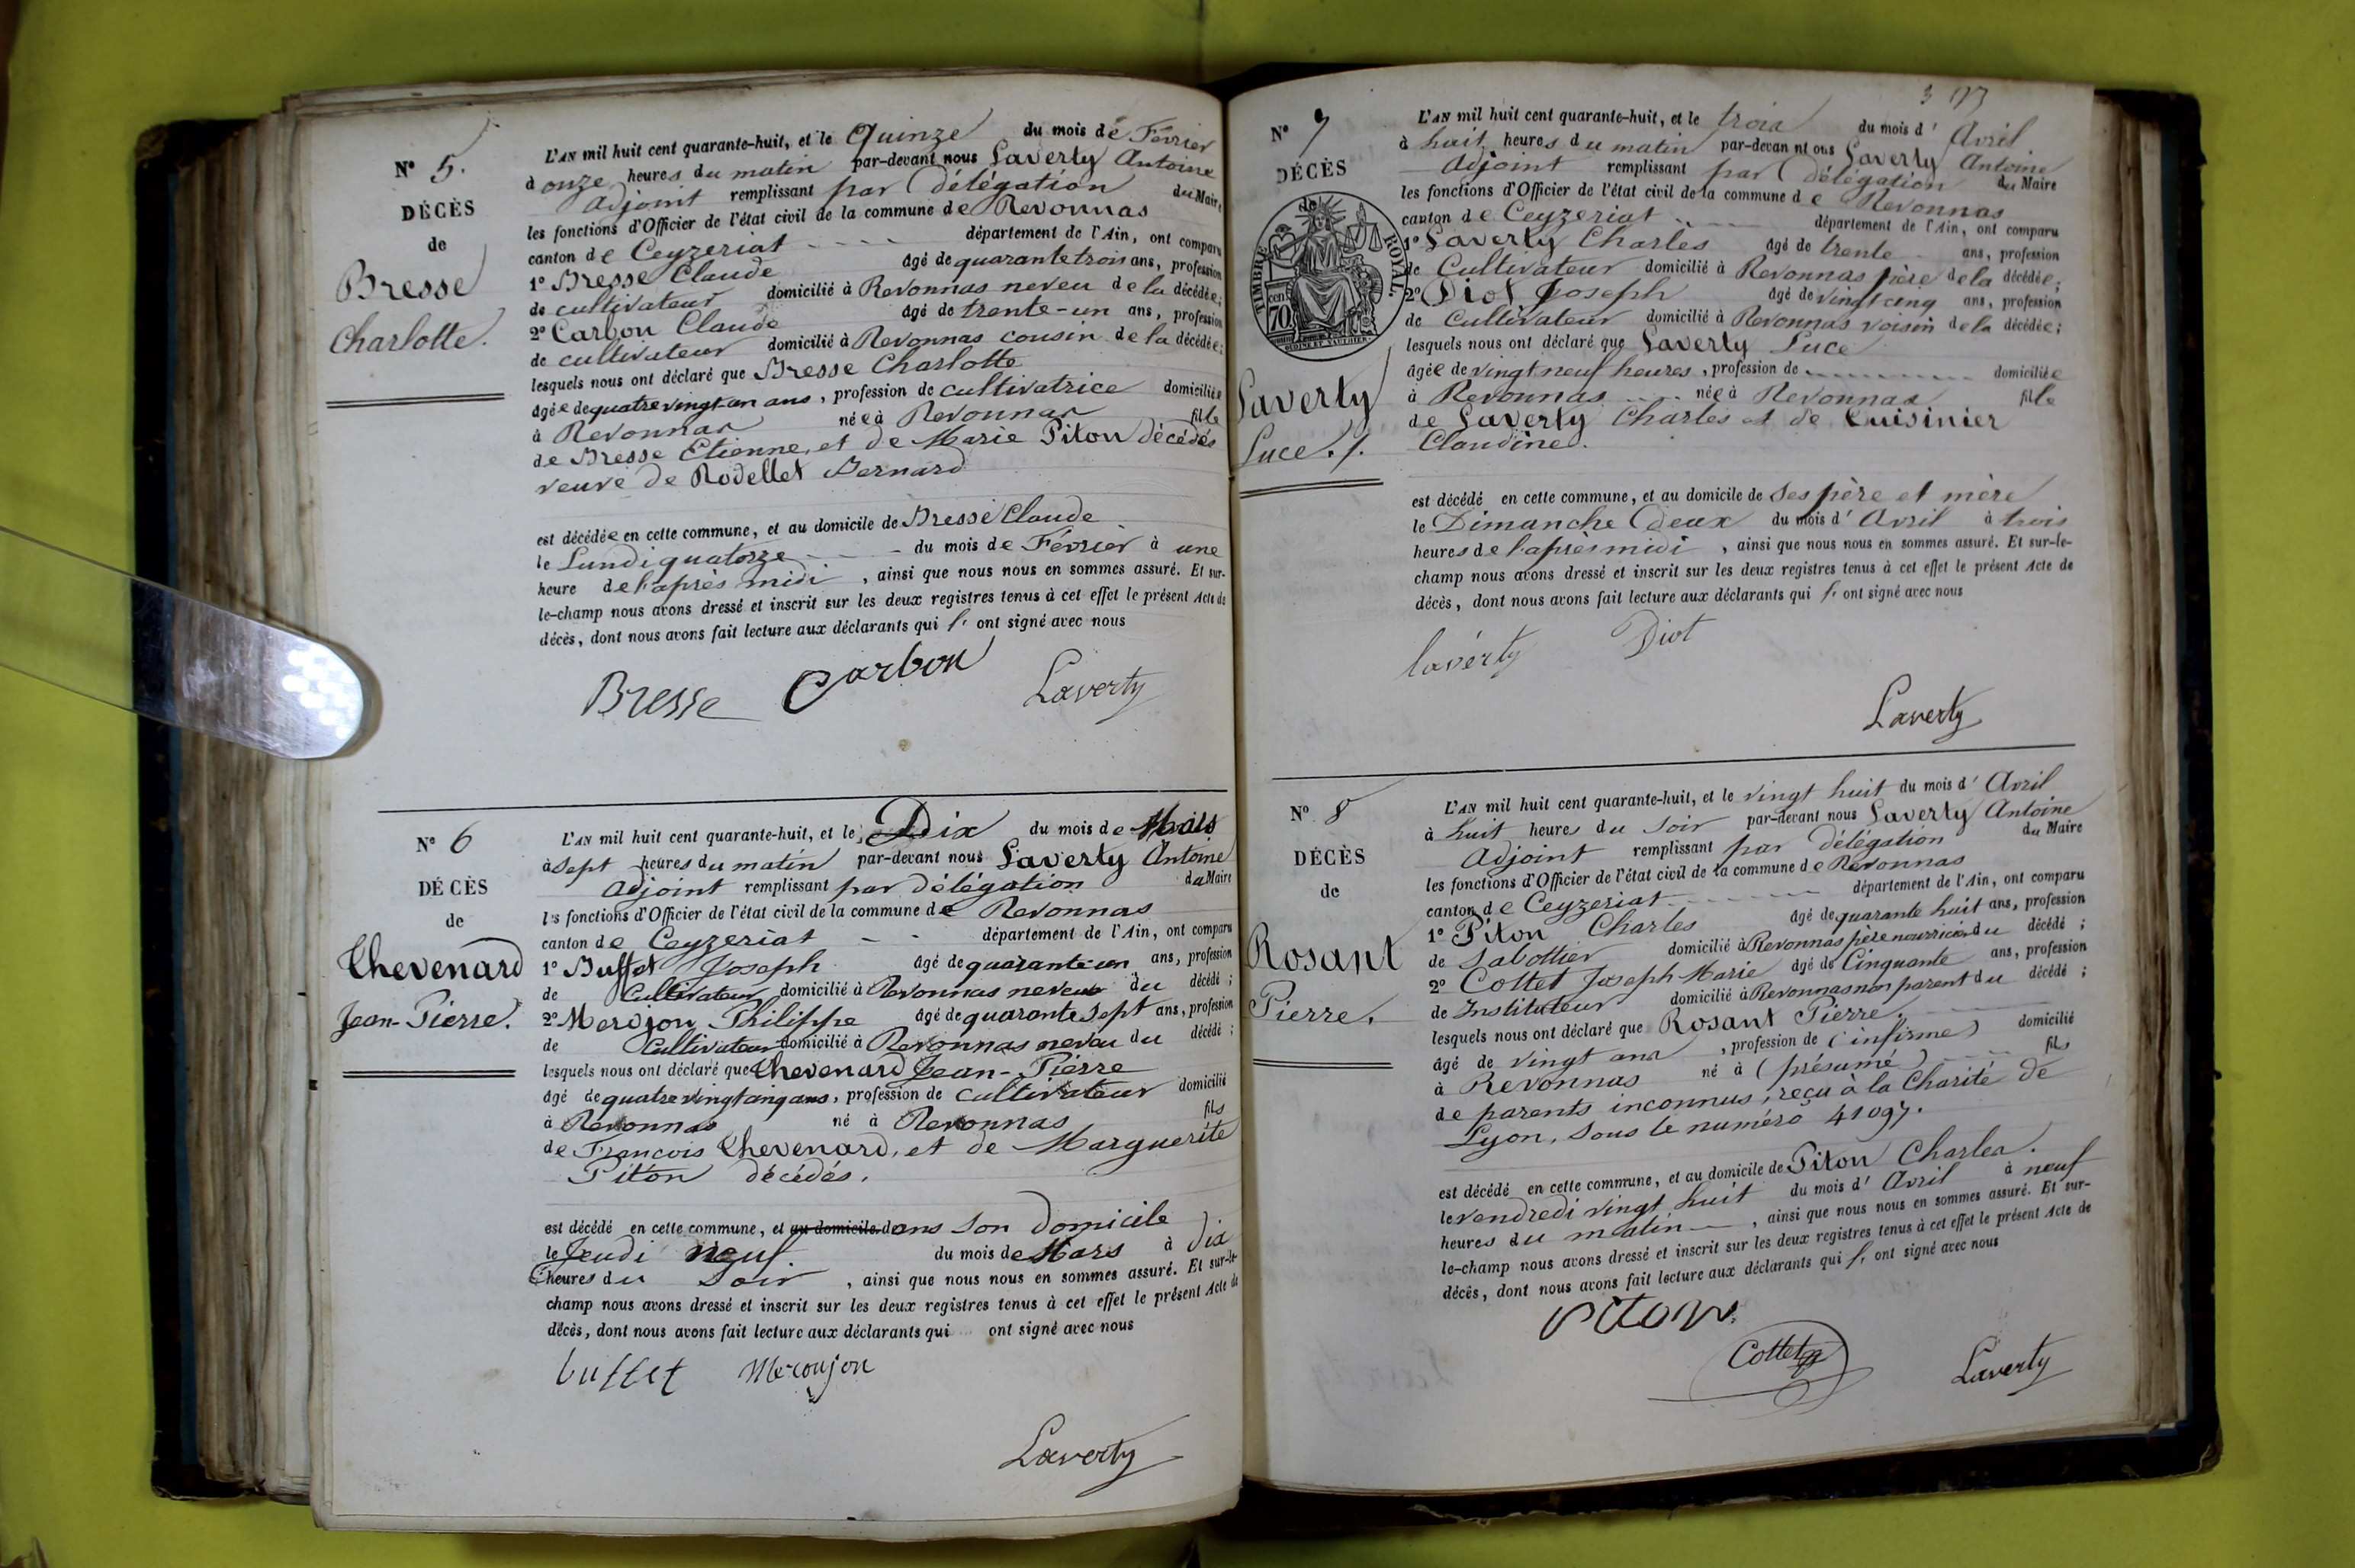 N° 5.
DÉCÈS
de
Bresse
Charlotte.
L'AN mil huit cent quarante-huit, et le Quinze du mois de Février
à onze heures du matin par-devant nous Laverty Antoine
adjoint remplissant par délégation du Maire
les fonctions d'Officier de l'état civil de la commune de Revonnas
canton de Ceyzeriat département de l'Ain, ont comparu
1° Bresse Claude âgé de quarante trois ans, profession
de cultivateur domicilié à Revonnas neveu de la décédée;
2° Carbon Claude âgé de trente-un ans, profession
de cultivateur domicilié à Revonnas cousin de la décédée;
lesquels nous ont déclaré que Bresse Charlotte
âgée de quatre vingt-un ans, profession de cultivatrice domiciliée
à Revonnas née à Revonnas fille
de Bresse Etienne, et de Marie Piton décédés
veuve de Rodellet Bernard
est décédée en cette commune, et au domicile de Bresse Claude
le Lundi quatorze du mois de Février à une
heure de l'après midi, ainsi que nous nous en sommes assuré. Et sur-
le-champ nous avons dressé et inscrit sur les deux registres tenus à cet effet le présent Acte de
décès, dont nous avons fait lecture aux déclarants qui ont signé avec nous
Bresse Carbon Laverty
N° 6
DÉCÈS
de
Chevenard
Jean-Pierre.
L'AN mil huit cent quarante-huit, et le Dix du mois de Mars
à sept heures du matin par-devant nous Laverty Antoine
adjoint remplissant par délégation du Maire
les fonctions d'Officier de l'état civil de la commune de Revonnas
canton de Ceyzeriat département de l'Ain, ont comparu
1° Buffet Joseph âgé de quarante un ans, profession
de Cultivateur domicilié à Revonnas neveu du décédé;
2° Merdjon Philippe âgé de quarante sept ans, profession
de Cultivateur domicilié à Revonnas neveu du décédé;
lesquels nous ont déclaré que Chevenard Jean-Pierre
âgé de quatre vingt cinq ans, profession de cultivateur domicilié
à Revonnas né à Revonnas fils
de François Chevenard, et de Marguerite
Piton décédés.
est décédé en cette commune, et au domicile dans son domicile
le Jeudi neuf. du mois de Mars à Dix
heures du Soir, ainsi que nous nous en sommes assuré. Et sur-le-
champ nous avons dressé et inscrit sur les deux registres tenus à cet effet le présent Acte de
décès, dont nous avons fait lecture aux déclarants qui ont signé avec nous
buffet Meroujon
Laverty
N° 7
DÉCÈS
de
TIMBRE ROYAL.
cen 70
Laverty
Luce.
L'AN mil huit cent quarante-huit, et le trois du mois d'Avril
à huit heures du matin par-devan nt ous Laverty Antoine
Adjoint remplissant par délégation du Maire
les fonctions d'Officier de l'état civil de la commune de Revonnas
canton de Ceyzeriat département de l'Ain, ont comparu
1° Laverty Charles âgé de trente ans, profession
de Cultivateur domicilié à Revonnas père de la décédée;
2° Diot Joseph âgé de vingt cinq ans, profession
de Cultivateur domicilié à Revonnas voisin de la décédée;
lesquels nous ont déclaré que Laverty Luce
âgée de vingt neuf heures, profession de domiciliée
à Revonnas née à Revonnas fille
de Laverty Charles et de Cuisinier
Claudine.
est décédé en cette commune, et au domicile de Ses père et mère
le Dimanche deux du mois d'Avril à trois
heures de l'après midi, ainsi que nous nous en sommes assuré. Et sur-le-
champ nous avons dressé et inscrit sur les deux registres tenus à cet effet le présent Acte de
décès, dont nous avons fait lecture aux déclarants qui ont signé avec nous
laverty Diot
Laverty
N° 8
DÉCÈS
de
Rosant
Pierre.
L'AN mil huit cent quarante-huit, et le vingt huit du mois d'Avril
à huit heures du soir par-devant nous Laverty Antoine
Adjoint remplissant par délégation du Maire
les fonctions d'Officier de l'état civil de la commune de Revonnas
canton de Ceyzeriat département de l'Ain, ont comparu
1° Piton Charles âgé de quarante huit ans, profession
de Sabottier domicilié à Revonnas père nourricier du décédé;
2° Cottet Joseph Marie âgé de Cinquante ans, profession
de Instituteur domicilié à Revonnas non parent du décédé;
lesquels nous ont déclaré que Rosant Pierre.
âgé de vingt ans, profession de (infirme) domicilié
à Revonnas né à (présumé) fils
de parents inconnus, reçu à la Charité de
Lyon, sous le numéro 41097.
est décédé en cette commune, et au domicile de Piton Charles.
le vendredi vingt huit du mois d'Avril à neuf
heures du matin, ainsi que nous nous en sommes assuré. Et sur-
le-champ nous avons dressé et inscrit sur les deux registres tenus à cet effet le présent Acte de
décès, dont nous avons fait lecture aux déclarants qui ont signé avec nous
Piton
Cottet
Laverty